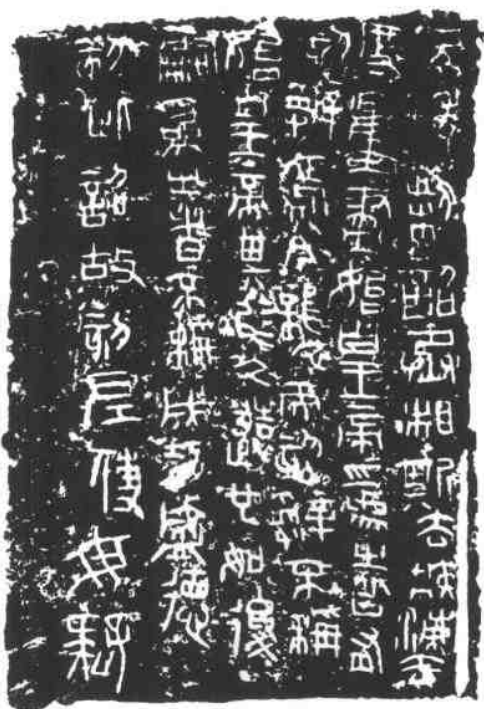 元年制詔丞相斯去疾灋
度量盡始皇帝為之皆有
刻辭焉今襲號而刻辭不稱
始皇帝其於久遠也如後
嗣為之者不稱成功盛德
刻此詔故刻左使毋疑